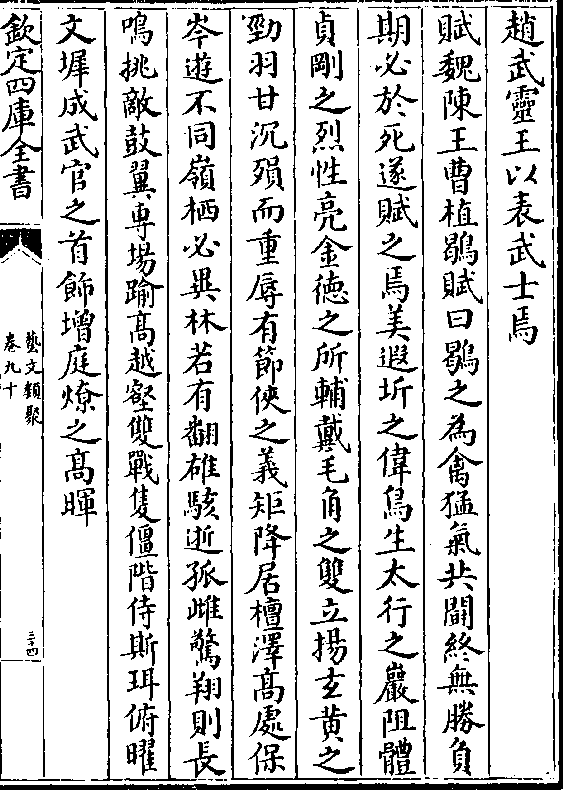 趙武靈王以表武士焉
賦魏陳王曹植鶡賦曰鶡之為禽猛氣共鬬終無勝負
期必於死遂賦之焉美遐圻之偉鳥生太行之巖阻體
貞剛之烈性亮金德之所輔戴毛角之雙立揚玄黃之
勁羽甘沉殞而重辱有節俠之義矩降居檀澤高處保
岑遊不同嶺栖必異林若有翻雄駭逝孤雌驚翔則長
鳴挑敵鼓翼專場踰高越壑雙戰隻僵階侍斯珥俯曜
文墀成武官之首飾增庭燎之高暉
欽定四庫全書
藝文類聚
卷九十
三十四